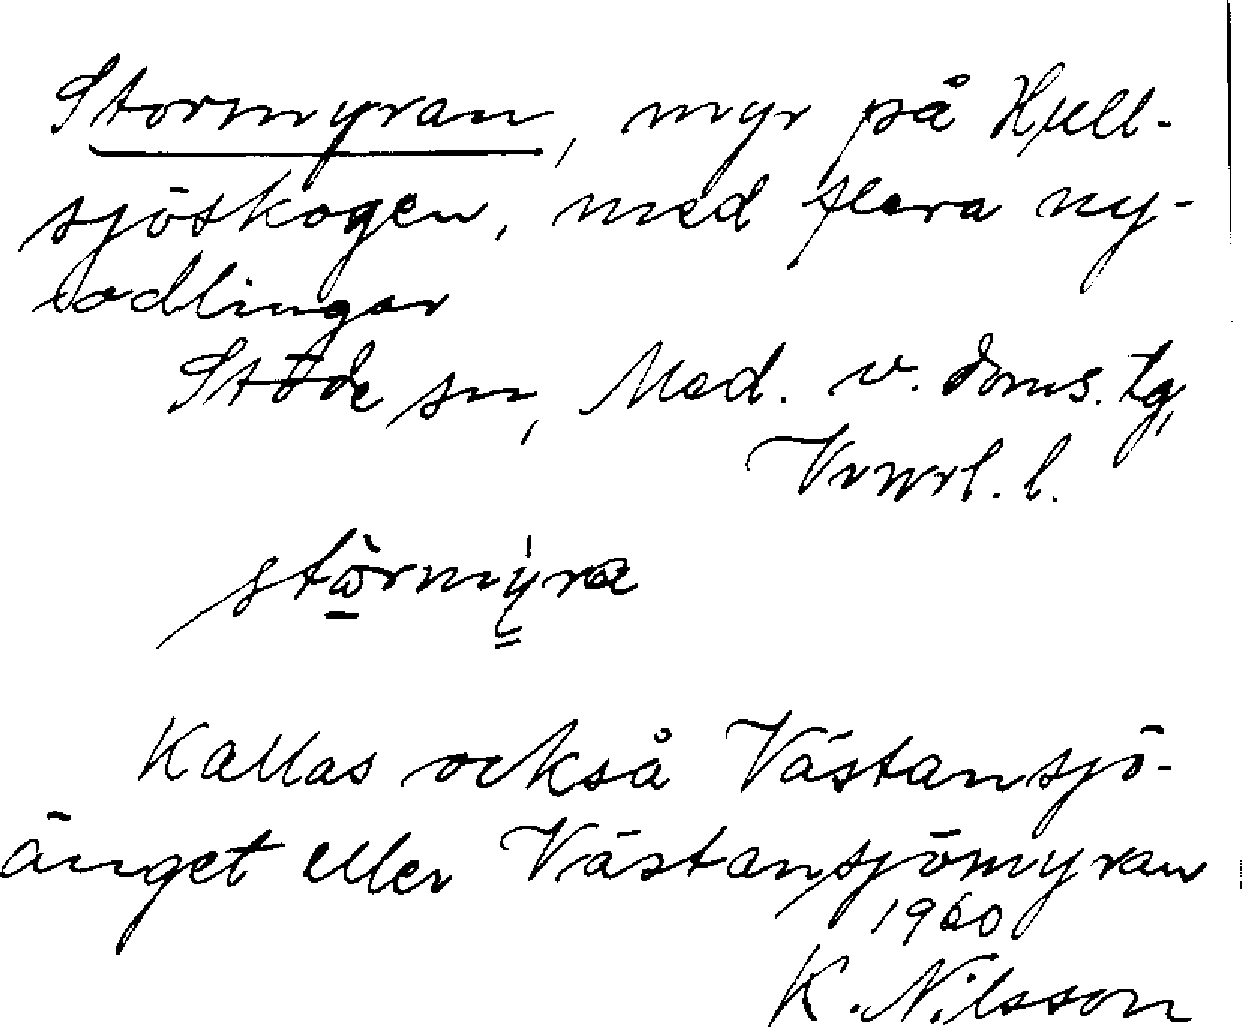 Stormyran, myr på Hull-
sjöskogen, med flera ny-
odlingar
Stöde sn, Med. v. doms. tg,
l.
störmyra
Kallas också Västansjö-
änget eller Västansjömyran
1960
K. Nilsson